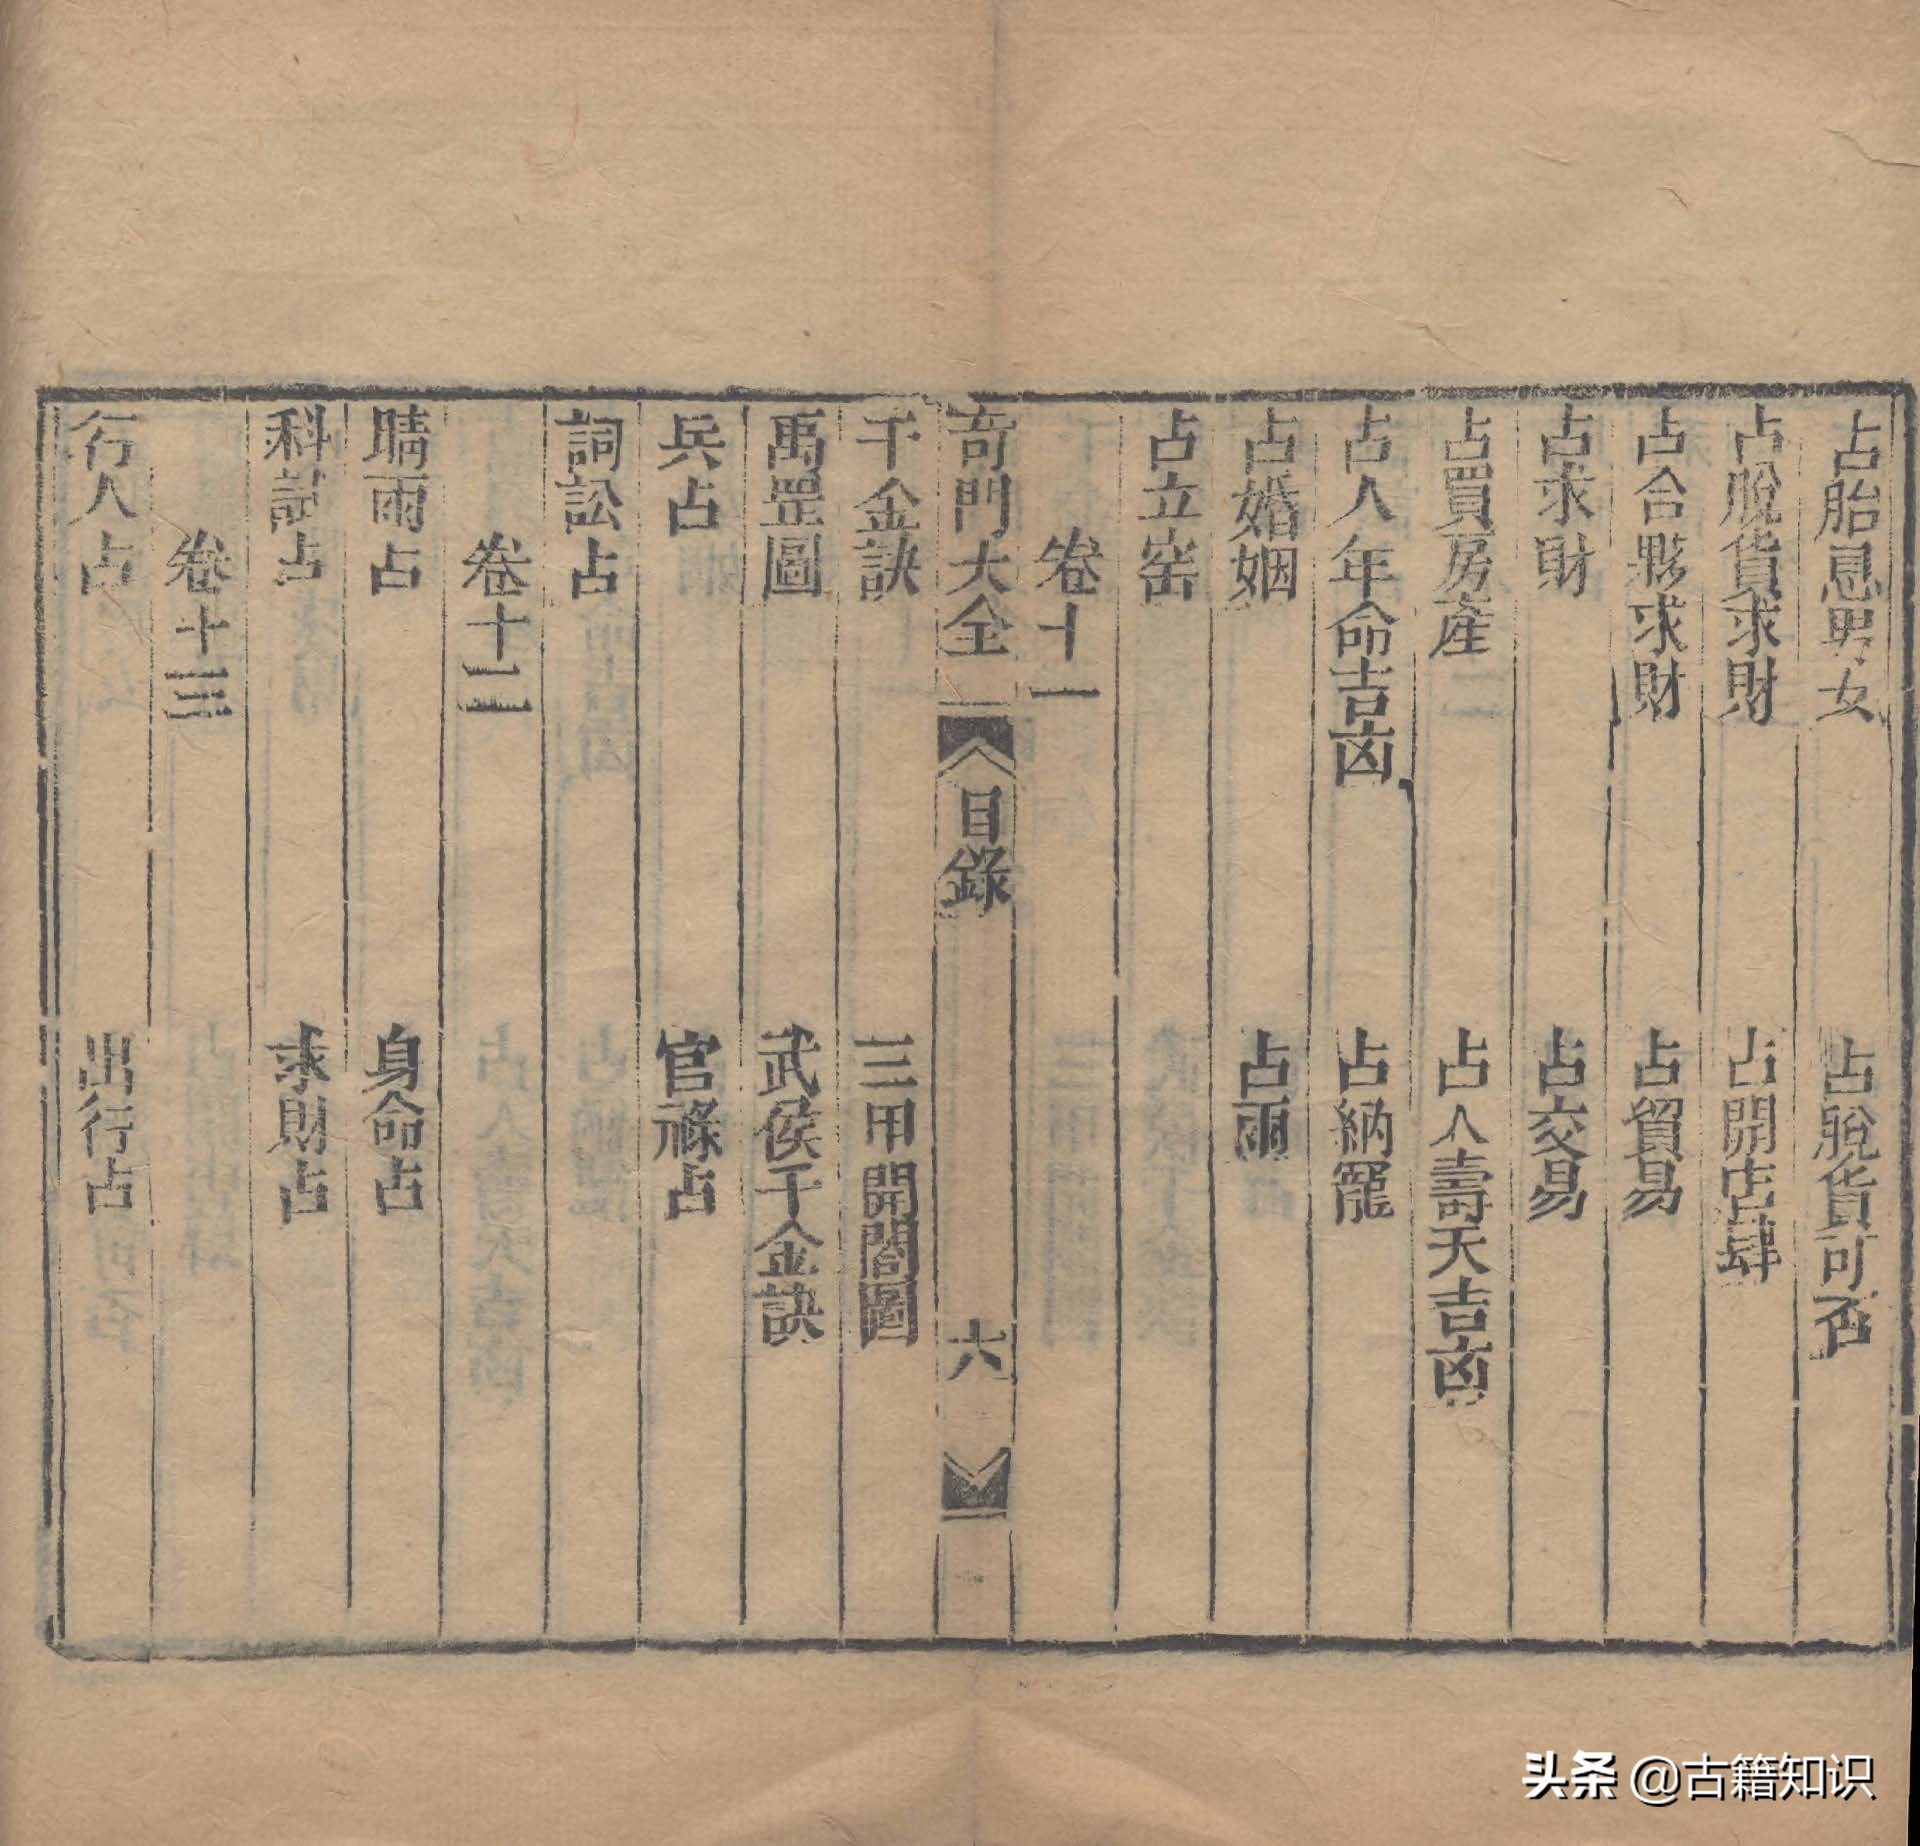 占胎息男女 占脫貨可否
占脫貨求財 占開店肆
占合夥求財 占貿易
占求財 占交易
占買房產 占人壽夭吉凶
占人年命吉凶 占納寵
占婚姻 占雨
占立窑
卷十一
奇門大全 目錄 六
千金訣 三甲開閤圖
禹罡圖 武侯千金訣
兵占 官祿占
詞訟占
卷十二
晴雨占 身命占
科試占 求財占
卷十三
行人占 出行占
头条 @古籍知识